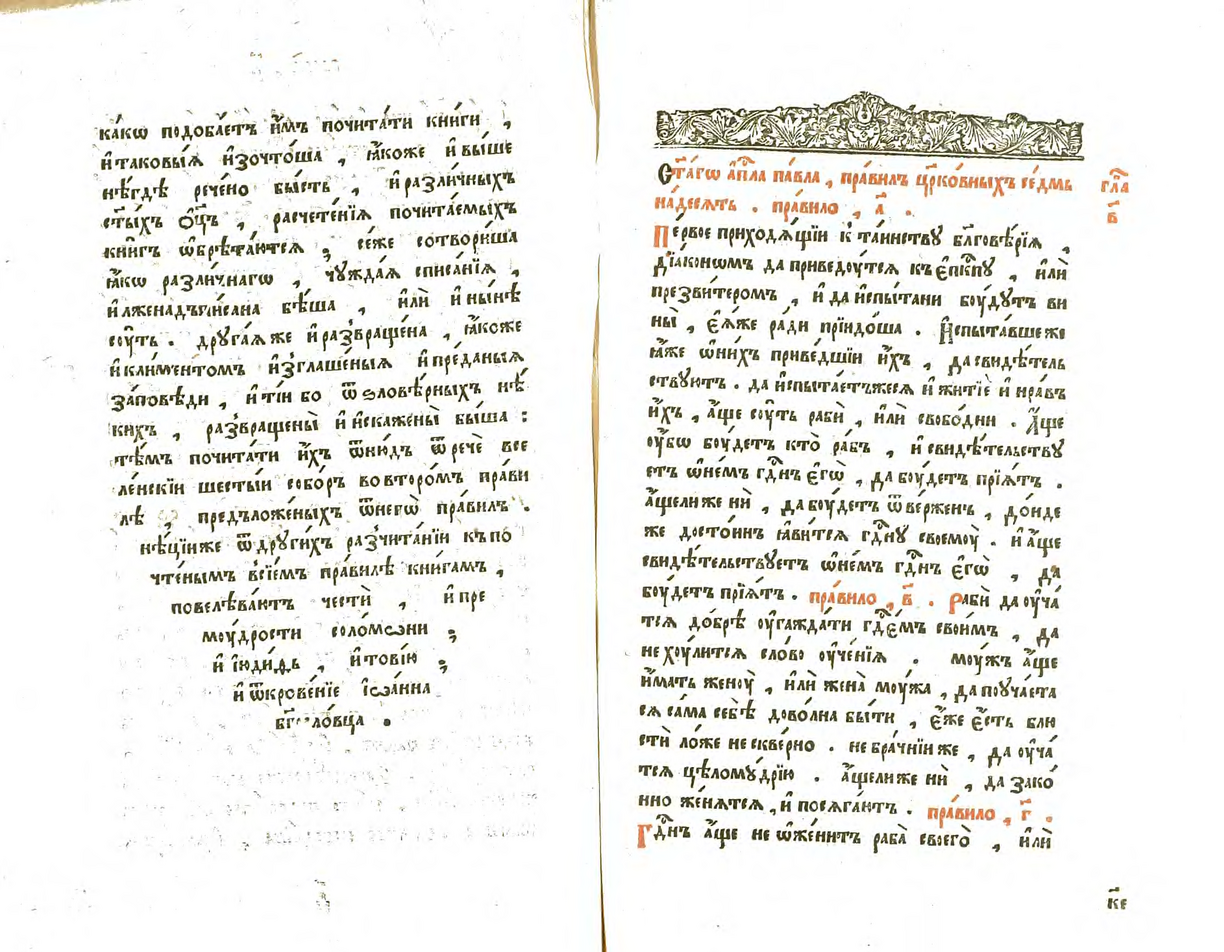 ка́кѡ подоба́етъ и҆̀мъ почита́ти кни́ги ,
и҆таковы́ѧ и҆зочто́ша , ꙗ҆́коже и҆вы́ше
нѣ́гдѣ рече́но бы́сть , и҆разли́чныхъ
ст҃ы́хъ ѻ҆ц҃ъ , расчете́нїѧ почита́емыхъ
кни́гъ ѡ҆брѣта́ютсѧ ; се́же сотвори́ша
ꙗ҆́кѡ разли́чнагѡ , чꙋжда́ѧ списа́нїѧ ,
и҆лженадъпи́сана бѣ́ша , и҆лѝ и҆ны́нѣ
сꙋ́ть . дрꙋга́ѧже и҆развраще́на , ꙗ҆́коже
и҆кли́ментомъ и҆зглаше́ныѧ и҆пре́даныѧ
за́повѣди , и҆ті́и бо ѿѕловѣ́рныхъ нѣ́
кихъ , развраще́ны и҆искаже́ны бы́ша :
тѣ́мъ почита́ти и҆́хъ ѿню́дъ ѿречѐ все
ле́нскїи шесты́и собо́ръ вовторо́мъ пра́ви
лѣ , предъложе́ныхъ ѿнегѡ̀ пра́вилъ .
нѣ́цїиже ѿдрꙋги́хъ разчита́нїи къпо
чте́нымъ всі́емъ пра́вилѣ кни́гамъ ,
повелѣва́ютъ че́сти , и҆пре
мꙋ́дрости соломѡ́ни ;
и҆ і҆ꙋди́ѳь , и҆тові́ю ;
и҆ ѿкрове́нїе і҆ѡа́нна
бг҃осло́вца .
Ст҃а́гѡ а҆пⷭ҇ла па́вла , пра́вилъ цр҃ко́вныхъ се́дмь
на́десѧть . пра́вило , а҃ .
гла
в҃
Пе́рвое приходѧ́щїи к̾ та́инствꙋ бл҃гове́рїѧ ,
дїа́кономъ да приведꙋ́тсѧ къ є҆пⷭ҇кпꙋ , и҆лѝ
презви́теромъ , и҆ да и҆спы́тани бꙋ́дꙋтъ ви
ны̀ , є҆ѧ́же ра́ди прїидо́ша . И҆спыта́вшеже
ꙗ҆́же ѡ҆ни́хъ приве́дшїи и҆́хъ , да свидѣ́тель
ствꙋютъ . да и҆спыта́етъжесѧ и҆ житїѐ и҆ нра́въ
и҆́хъ , а҆́ще сꙋ́ть рабѝ , и҆лѝ свобо́дни . А҆́ще
ᲂу҆́бѡ бꙋ́детъ кто̀ ра́бъ , и҆ свидѣ́тельствꙋ
етъ ѡ҆не́мъ гдⷭ҇нъ є҆гѡ̀ , да бꙋ́детъ прїѧ́тъ .
а҆́щелиже нѝ , да бꙋ́детъ ѿве́рженъ , до́нде
же досто́инъ ꙗ҆ви́тсѧ гдⷭ҇нꙋ своемꙋ̀ . и҆ а҆́ще
свидѣ́тельствꙋетъ ѡ҆не́мъ гдⷭ҇нъ є҆гѡ̀ , да
бꙋ́детъ прїѧ́тъ . пра́вило , в҃ . Рабѝ да ᲂу҆ча́
тсѧ до́брѣ ᲂу҆гажда́ти гдⷭ҇е́мъ свои́мъ , да
не хꙋ́литсѧ сло́во ᲂу҆че́нїѧ . мꙋ́жъ а҆́ще
и҆́мать женꙋ̀ , и҆лѝ жена̀ мꙋ́жа , да поꙋча́ета
сѧ сама̀ себѣ̀ дово́лна бы́ти , є҆́же є҆́сть блю
стѝ ло́же не скве́рно . не бра́чнїи же , да ᲂу҆ча́
тсѧ цѣломꙋ́дрїю . а҆́щелиже нѝ , да зако́
нно же́нѧтсѧ , и҆ посѧга́ютъ . пра́вило , г҃ .
Гдⷭ҇нъ а҆́ще не ѡ҆же́нитъ раба̀ своего̀ , и҆лѝ
к҃е